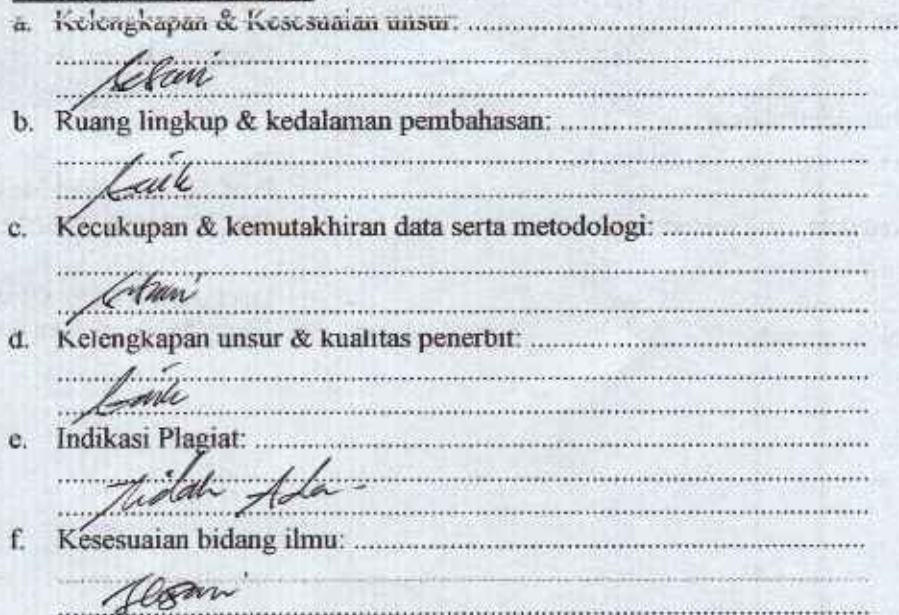 a. Kelengkapan & Kesesuaian unsur: ........................................
Sesuai
b. Ruang lingkup & kedalaman pembahasan: ........................................
baik
c. Kecukupan & kemutakhiran data serta metodologi: ........................................
d. Kelengkapan unsur & kualitas penerbit: ........................................
baik
e. Indikasi Plagiat: ........................................
Tidak Ada -
f. Kesesuaian bidang ilmu: ........................................
Sesuai